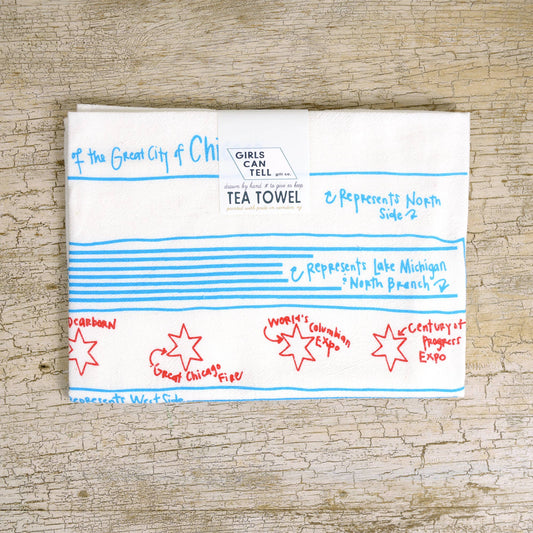 of the Great City of Chi
GIRLS
CAN
TELL
gift co.
drawn by hand & to give or keep
TEA TOWEL
printed with pride in
Represents North
Side
Represents Lake Michigan
& North Branch
Dearborn
Great Chicago
Fire
World's
Columbian
Expo
Century of
Progress
Expo
Represents West Side